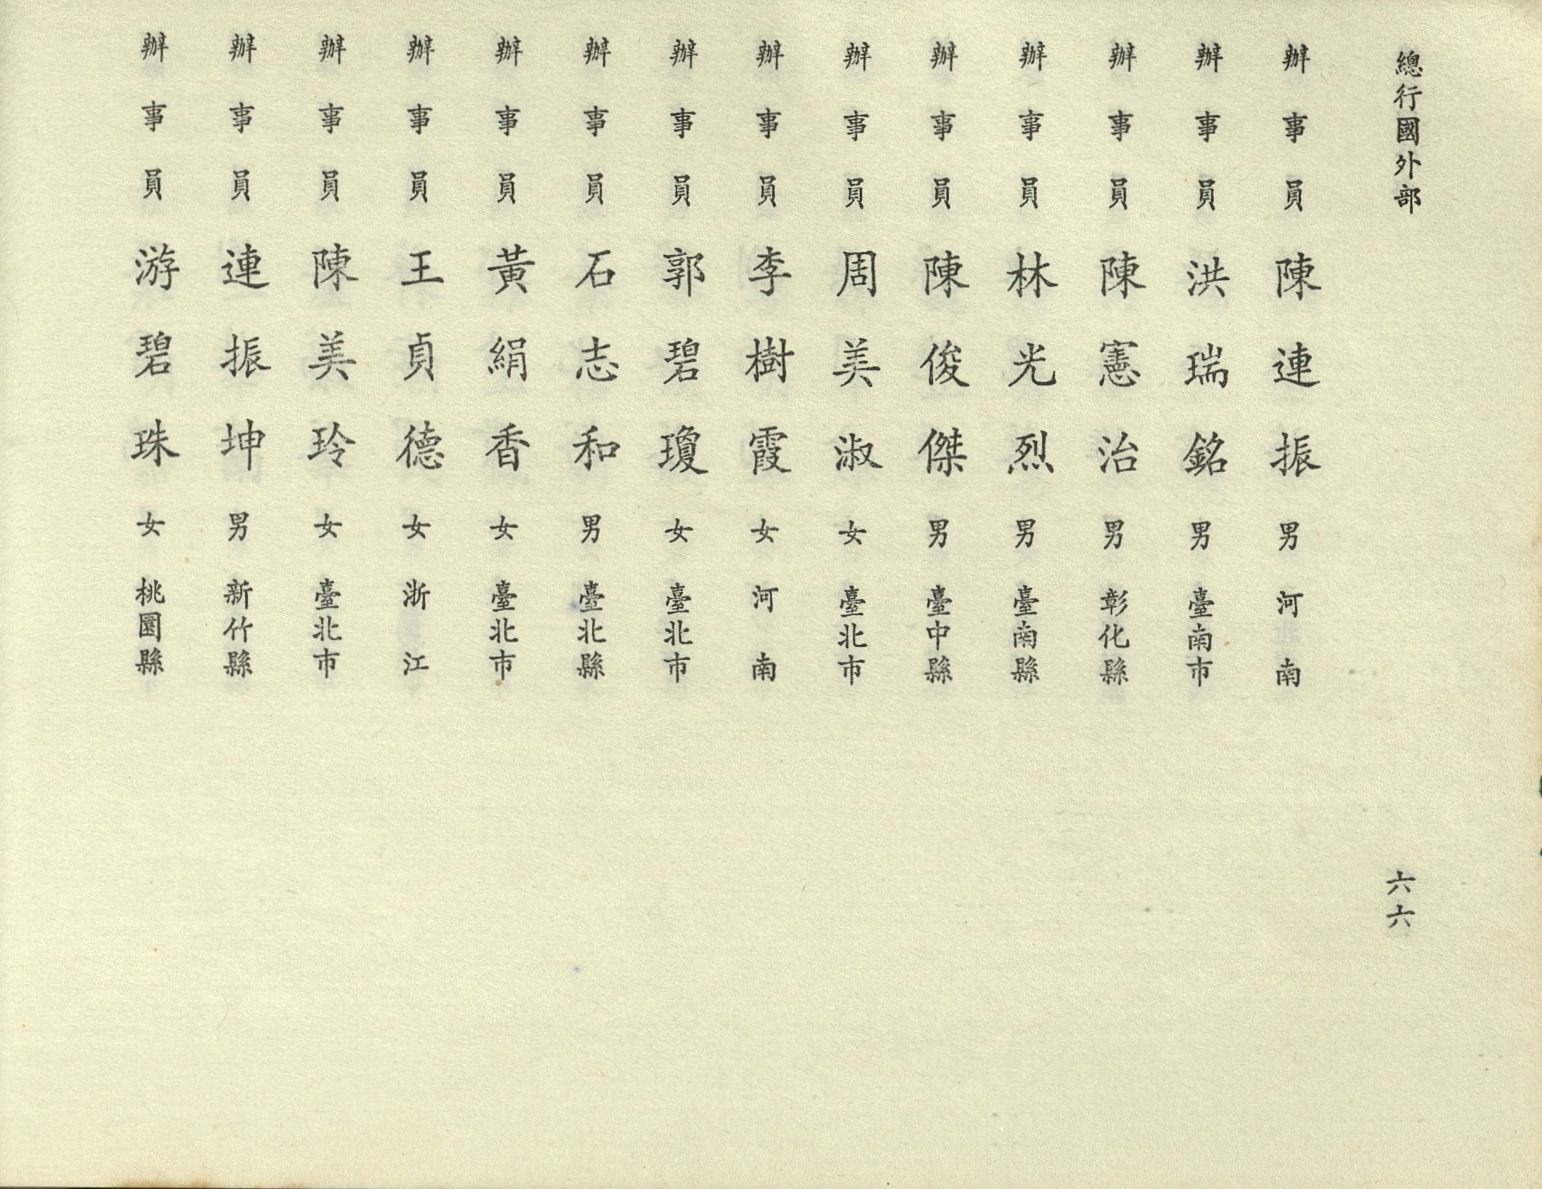 總行國外部
六六
辦事員 陳連振 男 河南
辦事員 洪瑞銘 男 臺南市
辦事員 陳憲治 男 彰化縣
辦事員 林光烈 男 臺南縣
辦事員 陳俊傑 男 臺中縣
辦事員 周美淑 女 臺北市
辦事員 李樹霞 女 河南
辦事員 郭碧瓊 女 臺北市
辦事員 石志和 男 臺北縣
辦事員 黃絹香 女 臺北市
辦事員 王貞德 女 浙江
辦事員 陳美玲 女 臺北市
辦事員 連振坤 男 新竹縣
辦事員 游碧珠 女 桃園縣